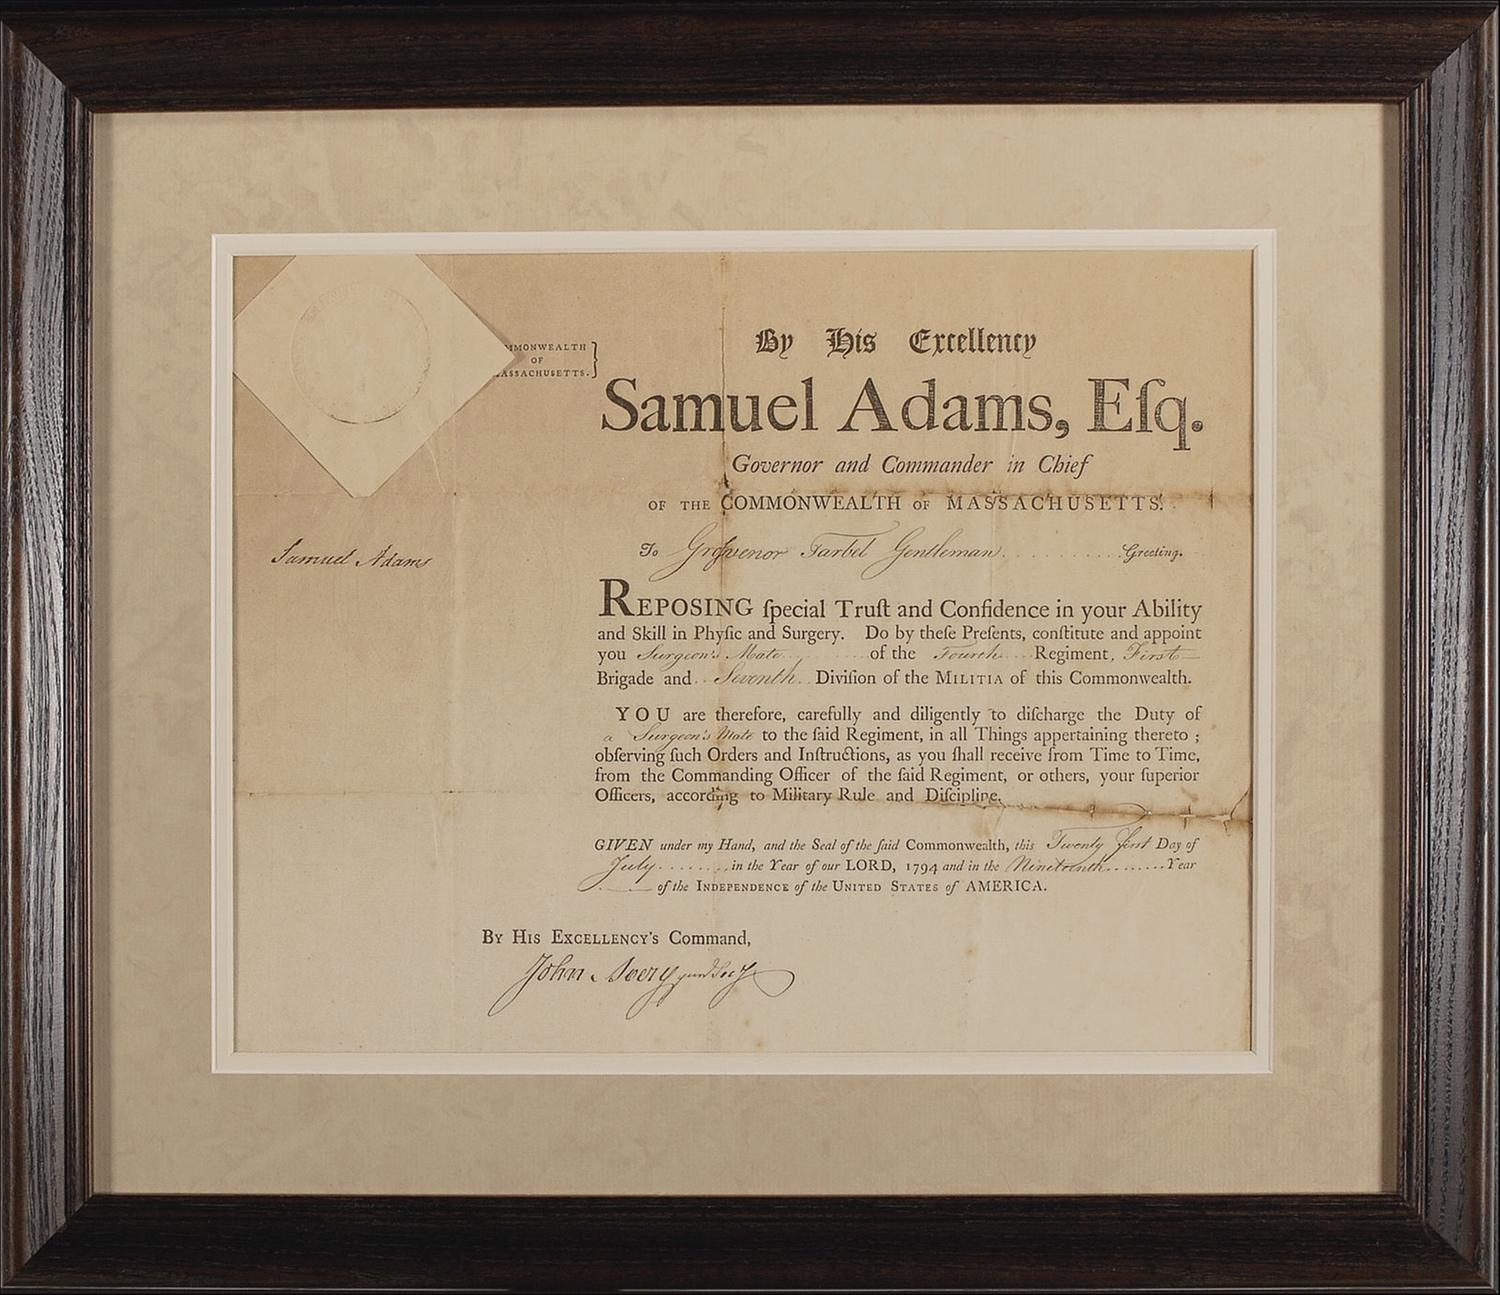 MMONWEALTH
OF
ASSACHUSETTS. }
By His Excellency
Samuel Adams, Eſq.
Governor and Commander in Chief
OF THE COMMONWEALTH OF MASSACHUSETTS.
To Groſvenor Tarbel Gentleman. Greeting.
Samuel Adams
REPOSING ſpecial Truſt and Confidence in your Ability
and Skill in Phyſic and Surgery. Do by theſe Preſents, conſtitute and appoint
you Surgeon's Mate of the Fourth Regiment, First
Brigade and Seventh Diviſion of the MILITIA of this Commonwealth.
YOU are therefore, carefully and diligently to diſcharge the Duty of
a Surgeon's Mate to the ſaid Regiment, in all Things appertaining thereto ;
obſerving ſuch Orders and Inſtructions, as you ſhall receive from Time to Time,
from the Commanding Officer of the ſaid Regiment, or others, your ſuperior
Officers, according to Military Rule and Diſcipline.
GIVEN under my Hand, and the Seal of the ſaid Commonwealth, this Twenty first Day of
July in the Year of our LORD, 1794 and in the Nineteenth Year
of the INDEPENDENCE of the UNITED STATES of AMERICA.
BY HIS EXCELLENCY'S Command,
John Avery jun Secy